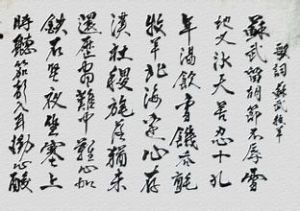 歌詞 蘇武牧羊
蘇武留胡節不辱雪
地又冰天苦忍十九
年渴飲雪饑吞氈
牧羊北海邊心存
漢社稷旄落猶未
還歷盡難中難心如
鉄石堅夜坐塞上
時聽笳聲入耳慟心酸